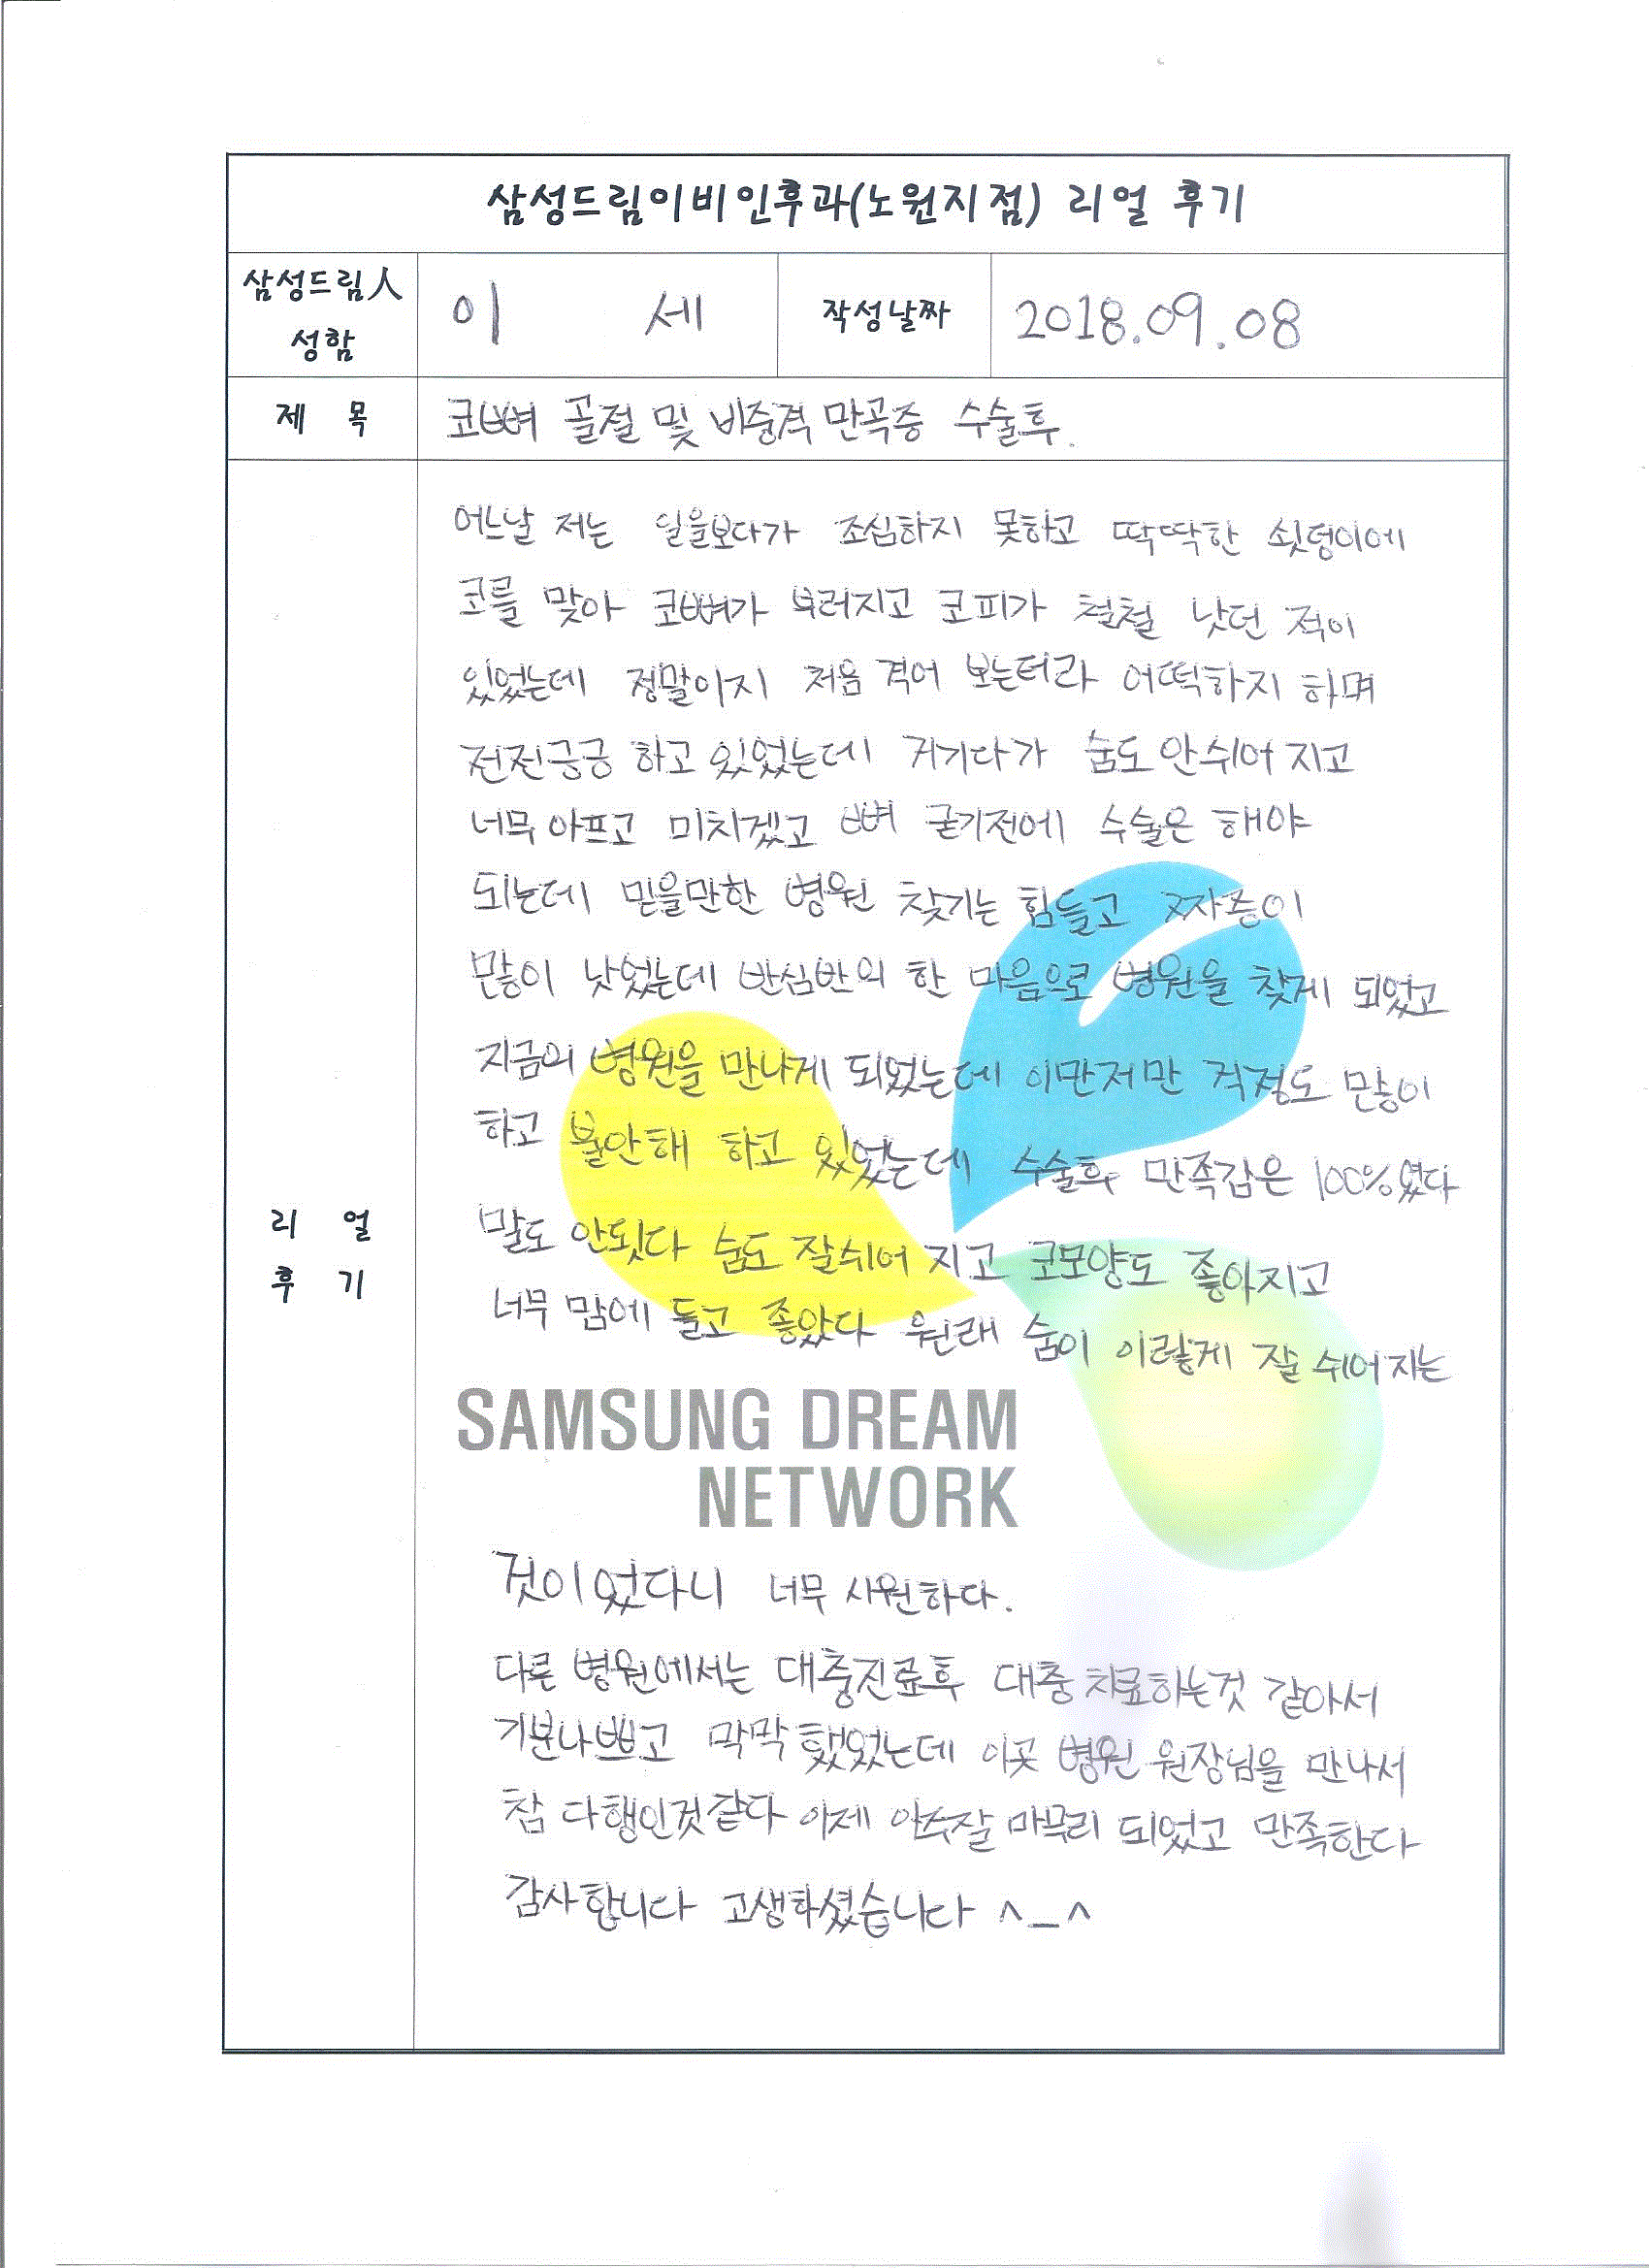 삼성드림이비인후과(노원지점) 리얼 후기
삼성드림人
성함
이 세
작성날짜
2018.09.08
제 목
코뼈 골절 및 비중격 만곡증 수술후.
리 얼
후 기
어느날 저는 일을보다가 조심하지 못하고 딱딱한 쇳덩이에
코를 맞아 코뼈가 부러지고 코피가 철철 낫던 적이
있었는데 정말이지 처음 격어 보는터라 어떡하지 하며
전전긍긍 하고 있었는데 거기다가 숨도 안쉬어 지고
너무 아프고 미치겠고 뼈 굳기전에 수술은 해야
되는데 믿을만한 병원 찾기는 힘들고 짜증이
많이 낫었는데 반심반의 한 마음으로 병원을 찾게 되었고
지금의 병원을 만나게 되었는데 이만저만 걱정도 많이
하고 불안해 하고 있었는데 수술후 만족감은 100%였다
말도 안됫다 숨도 잘쉬어 지고 코모양도 좋아지고
너무 맘에 들고 좋았다 원래 숨이 이렇게 잘 쉬어지는
SAMSUNG DREAM
NETWORK
것이었다니 너무 시원하다.
다른 병원에서는 대충진료후 대충 치료하는것 같아서
기분나쁘고 막막했었는데 이곳 병원 원장님을 만나서
참 다행인것같다 이제 아주잘 마무리 되었고 만족한다
감사합니다 고생하셨습니다 ^_^